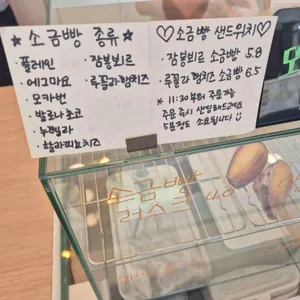 ★ 소금빵 종류 ★
플레인
에그마요
모카번
발로나 초코
누텔라
할라피뇨치즈
· 잠봉뵈르
· 루꼴라햄치즈
♡ 소금빵 샌드위치 ♡
· 잠봉뵈르 소금빵 5.8
· 루꼴라 햄치즈 소금빵 6.5
* 11:30부터 주문가능
주문 즉시 샌딩해드려요
5분정도 소요됩니다
소금빵
러스크 4.0